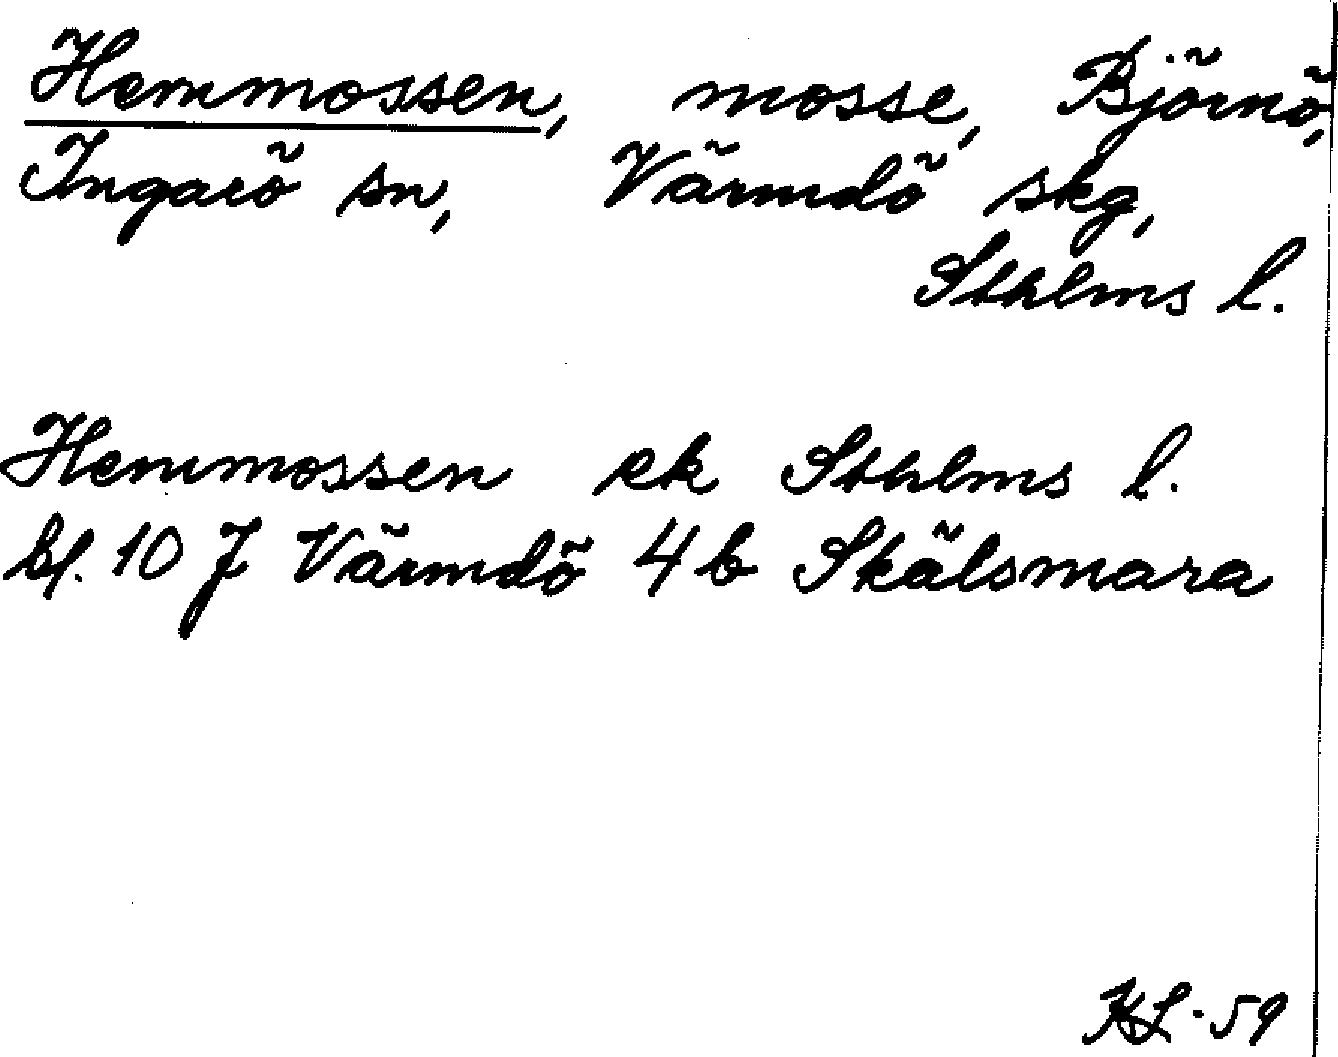 Hemmossen, mosse, Björnö,
Ingarö sn, Värmdö skg,
Sthlms l.
Hemmossen ek Sthlms l.
bl. 10 J Värmdö 4 b Skälsmara
KL-59